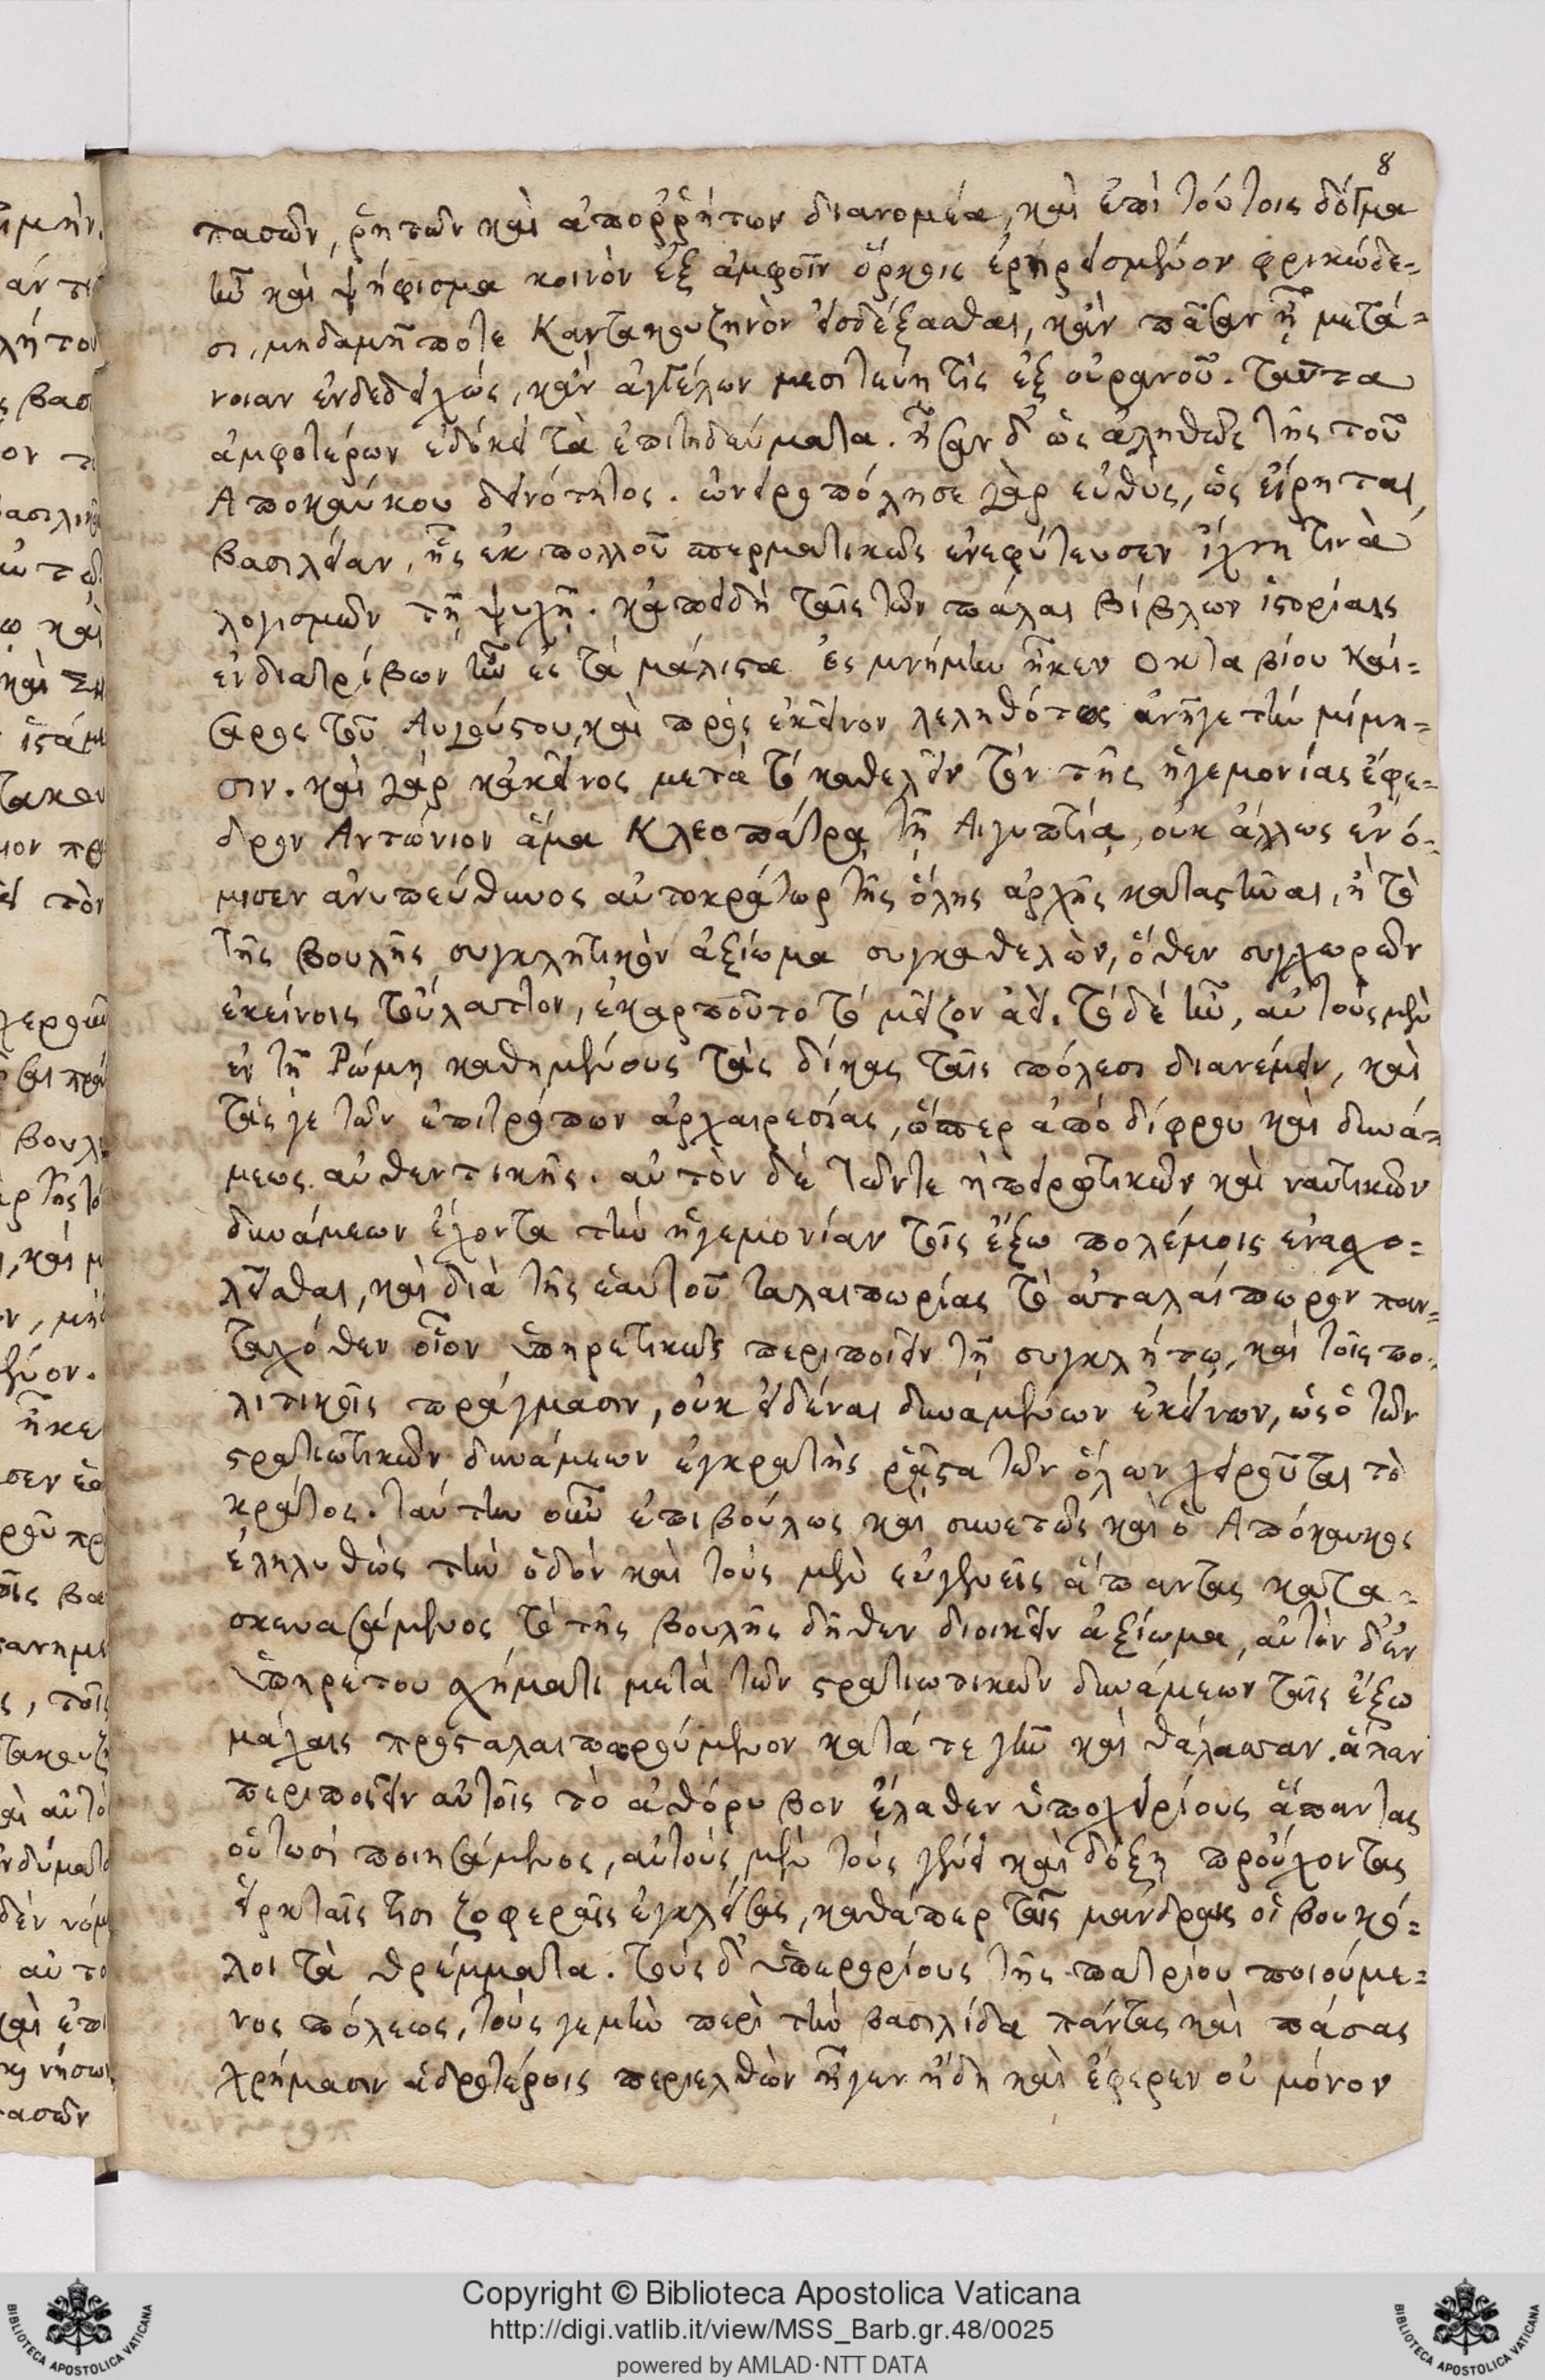 8
πασῶν, ῥητῶν καὶ ἀποῤῥήτων διανομέα, καὶ ἐπὶ τούτοις δόγμα
ἦν καὶ ψήφισμα κοινὸν ἐξ ἀμφοῖν ὅρκοις ἐρηρεισμένον φρικώδε-
σι, μηδαμῆ ποτε Καντακουζηνὸν εἰσδέξασθαι, κἂν πᾶσαν ᾖ μετά-
νοιαν ἐνδεδειχώς, κἂν ἀγγέλων μεσιτεύῃ τὶς ἐξ οὐρανοῦ. ταῦτα
ἀμφοτέρων ἐδόκει τὰ ἐπιτηδεύματα. ἦσαν δ' ὡς ἀληθῶς τῆς τοῦ
Αποκαύκου δεινότητος. ὠνειροπόλησε γὰρ εὐθὺς, ὡς εἴρηται,
βασιλείαν, ἧς ἐκ πολλοῦ σπερματικῶς ἐνεφύτευσεν ἴχνη τινὰ
λογισμῶν τῇ ψυχῇ. κἀπειδὴ ταῖς τῶν πάλαι βίβλων ἱστορίαις
ἐνδιατρίβων ἦν ἐς τὰ μάλιστα ἐς μνήμην ἧκεν Οκταβίου Καί-
σαρος τοῦ Αυγούστου, καὶ πρὸς ἐκεῖνον λεληθότως ἀνῆγε τὴν μίμη-
σιν. καὶ γὰρ κἀκεῖνος μετὰ τὸ καθελεῖν τὸν τῆς ἡγεμονίας ἔφε-
δρον Αντώνιον ἅμα Κλεοπάτρᾳ τῇ Αιγυπτίᾳ, οὐκ ἄλλως ἐνό-
μισεν ἀνυπεύθυνος αὐτοκράτωρ τῆς ὅλης ἀρχῆς καταστῆναι, ἢ τὸ
τῆς βουλῆς συγκλητικὸν ἀξίωμα συγκαθελὼν, ὅθεν συγχωρῶν
ἐκείνοις τοὔλαττον, ἐκαρποῦτο τὸ μεῖζον ἀεί. τὸ δὲ ἦν, αὐτοὺς μὲν
ἐν τῇ Ρώμῃ καθημένους τὰς δίκας ταῖς πόλεσι διανέμειν, καὶ
τάς γε τῶν ἐπιτρόπων ἀρχαιρεσίας, ὥσπερ ἀπὸ δίφρου καὶ δυνά-
μεως αὐθεντικῆς. αὐτὸν δὲ τῶν τε ἠπειρωτικῶν καὶ ναυτικῶν
δυνάμεων ἔχοντα τὴν ἡγεμονίαν τοῖς ἔξω πολέμοις ἐνασχο-
λεῖσθαι, καὶ διὰ τῆς ἑαυτοῦ ταλαιπωρίας τὸ ἀταλαίπωρον παν-
ταχόθεν οἷον ὑπηρετικῶς περιποιεῖν τῇ συγκλήτῳ, καὶ τοῖς πο-
λιτικοῖς πράγμασιν, οὐκ εἰδέναι δυναμένων ἐκείνων, ὡς ὁ τῶν
στρατιωτικῶν δυνάμεων ἐγκρατὴς ῥᾷστα τῶν ὅλων χειροῦται τὸ
κράτος. ταύτην οὖν ἐπιβούλως καὶ συνετῶς καὶ ὁ Απόκαυκος
ἐληλυθὼς τὴν ὁδὸν καὶ τοὺς μὲν εὐγενεῖς ἅπαντας κατα-
σκευασάμενος τὸ τῆς βουλῆς δῆθεν διοικεῖν ἀξίωμα, αὐτὸν δ' ἐν
ὑπηρέτου σχήματι μετὰ τῶν στρατιωτικῶν δυνάμεων ταῖς ἔξω
μάχαις προσταλαιπωρούμενον κατά τε γῆν καὶ θάλασσαν. ἅπαν
περιποιεῖν αὐτοῖς τὸ ἀθόρυβον ἔλαθεν ὑποχειρίους ἅπαντας
οὑτωσὶ ποιησάμενος, αὐτοὺς μὲν τοὺς γένει καὶ δόξῃ προὔχοντας
εἱρκταῖς τισι ζοφεραῖς ἐγκλείσας, καθάπερ ταῖς μάνδραις οἱ βουκό-
λοι τὰ θρέμματα. τοὺς δ' ὑπερορίους τῆς πατρίου ποιούμε-
νος πόλεως, τούς γε μὴν περὶ τὴν βασιλίδα πάντας καὶ πάσας
χρήμασιν ἁδροτέροις περιελθὼν ἦγεν ἤδη καὶ ἔφερεν οὐ μόνον
Copyright © Biblioteca Apostolica Vaticana
http://digi.vatlib.it/view/MSS_Barb.gr.48/0025
powered by AMLAD·NTT DATA
BIBLIOTECA APOSTOLICA VATICANA
BIBLIOTECA APOSTOLICA VATICANA